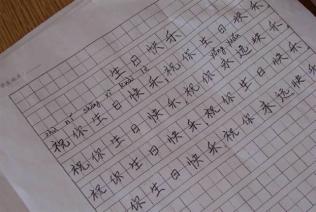 生日快乐
zhù nǐ shēng rì kuài lè yǒng yuǎn
祝你生日快乐,祝你生日快乐,
祝你生日快乐,祝你永远快乐,
祝你生日快乐,祝你生日快乐,
祝你生日快乐,祝你永远快乐,
你生日快乐